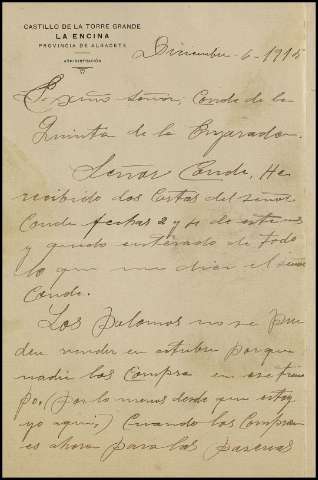 CASTILLO DE LA TORRE GRANDE
LA ENCINA
PROVINCIA DE ALBACETE
ADMINISTRACIÓN
Diciembre - 6 - 1915
Exmo señor, Conde de la
Quinta de la Enjarada.
Señor Conde, He
recibido dos Cartas del señor
Conde fechas 2 y 4 de
y quedo enterado de todo
lo que me dice el señor
Conde.
Los Palomos no se pue
den vender en octubre porque
nadie los Compra en ese tiem
po. (Por lo menos desde que estoy
yo aqui,) Cuando los Compran
es ahora para las pascuas